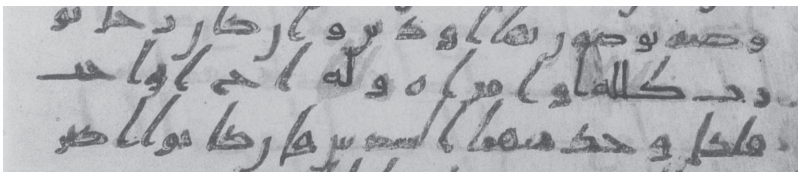 وصيه توصون بها او دين و ان كان رجل يو
رث كلله او امراه و له اخ او اخت
فلكل و حد منهما السدس فان كانوا اكثر